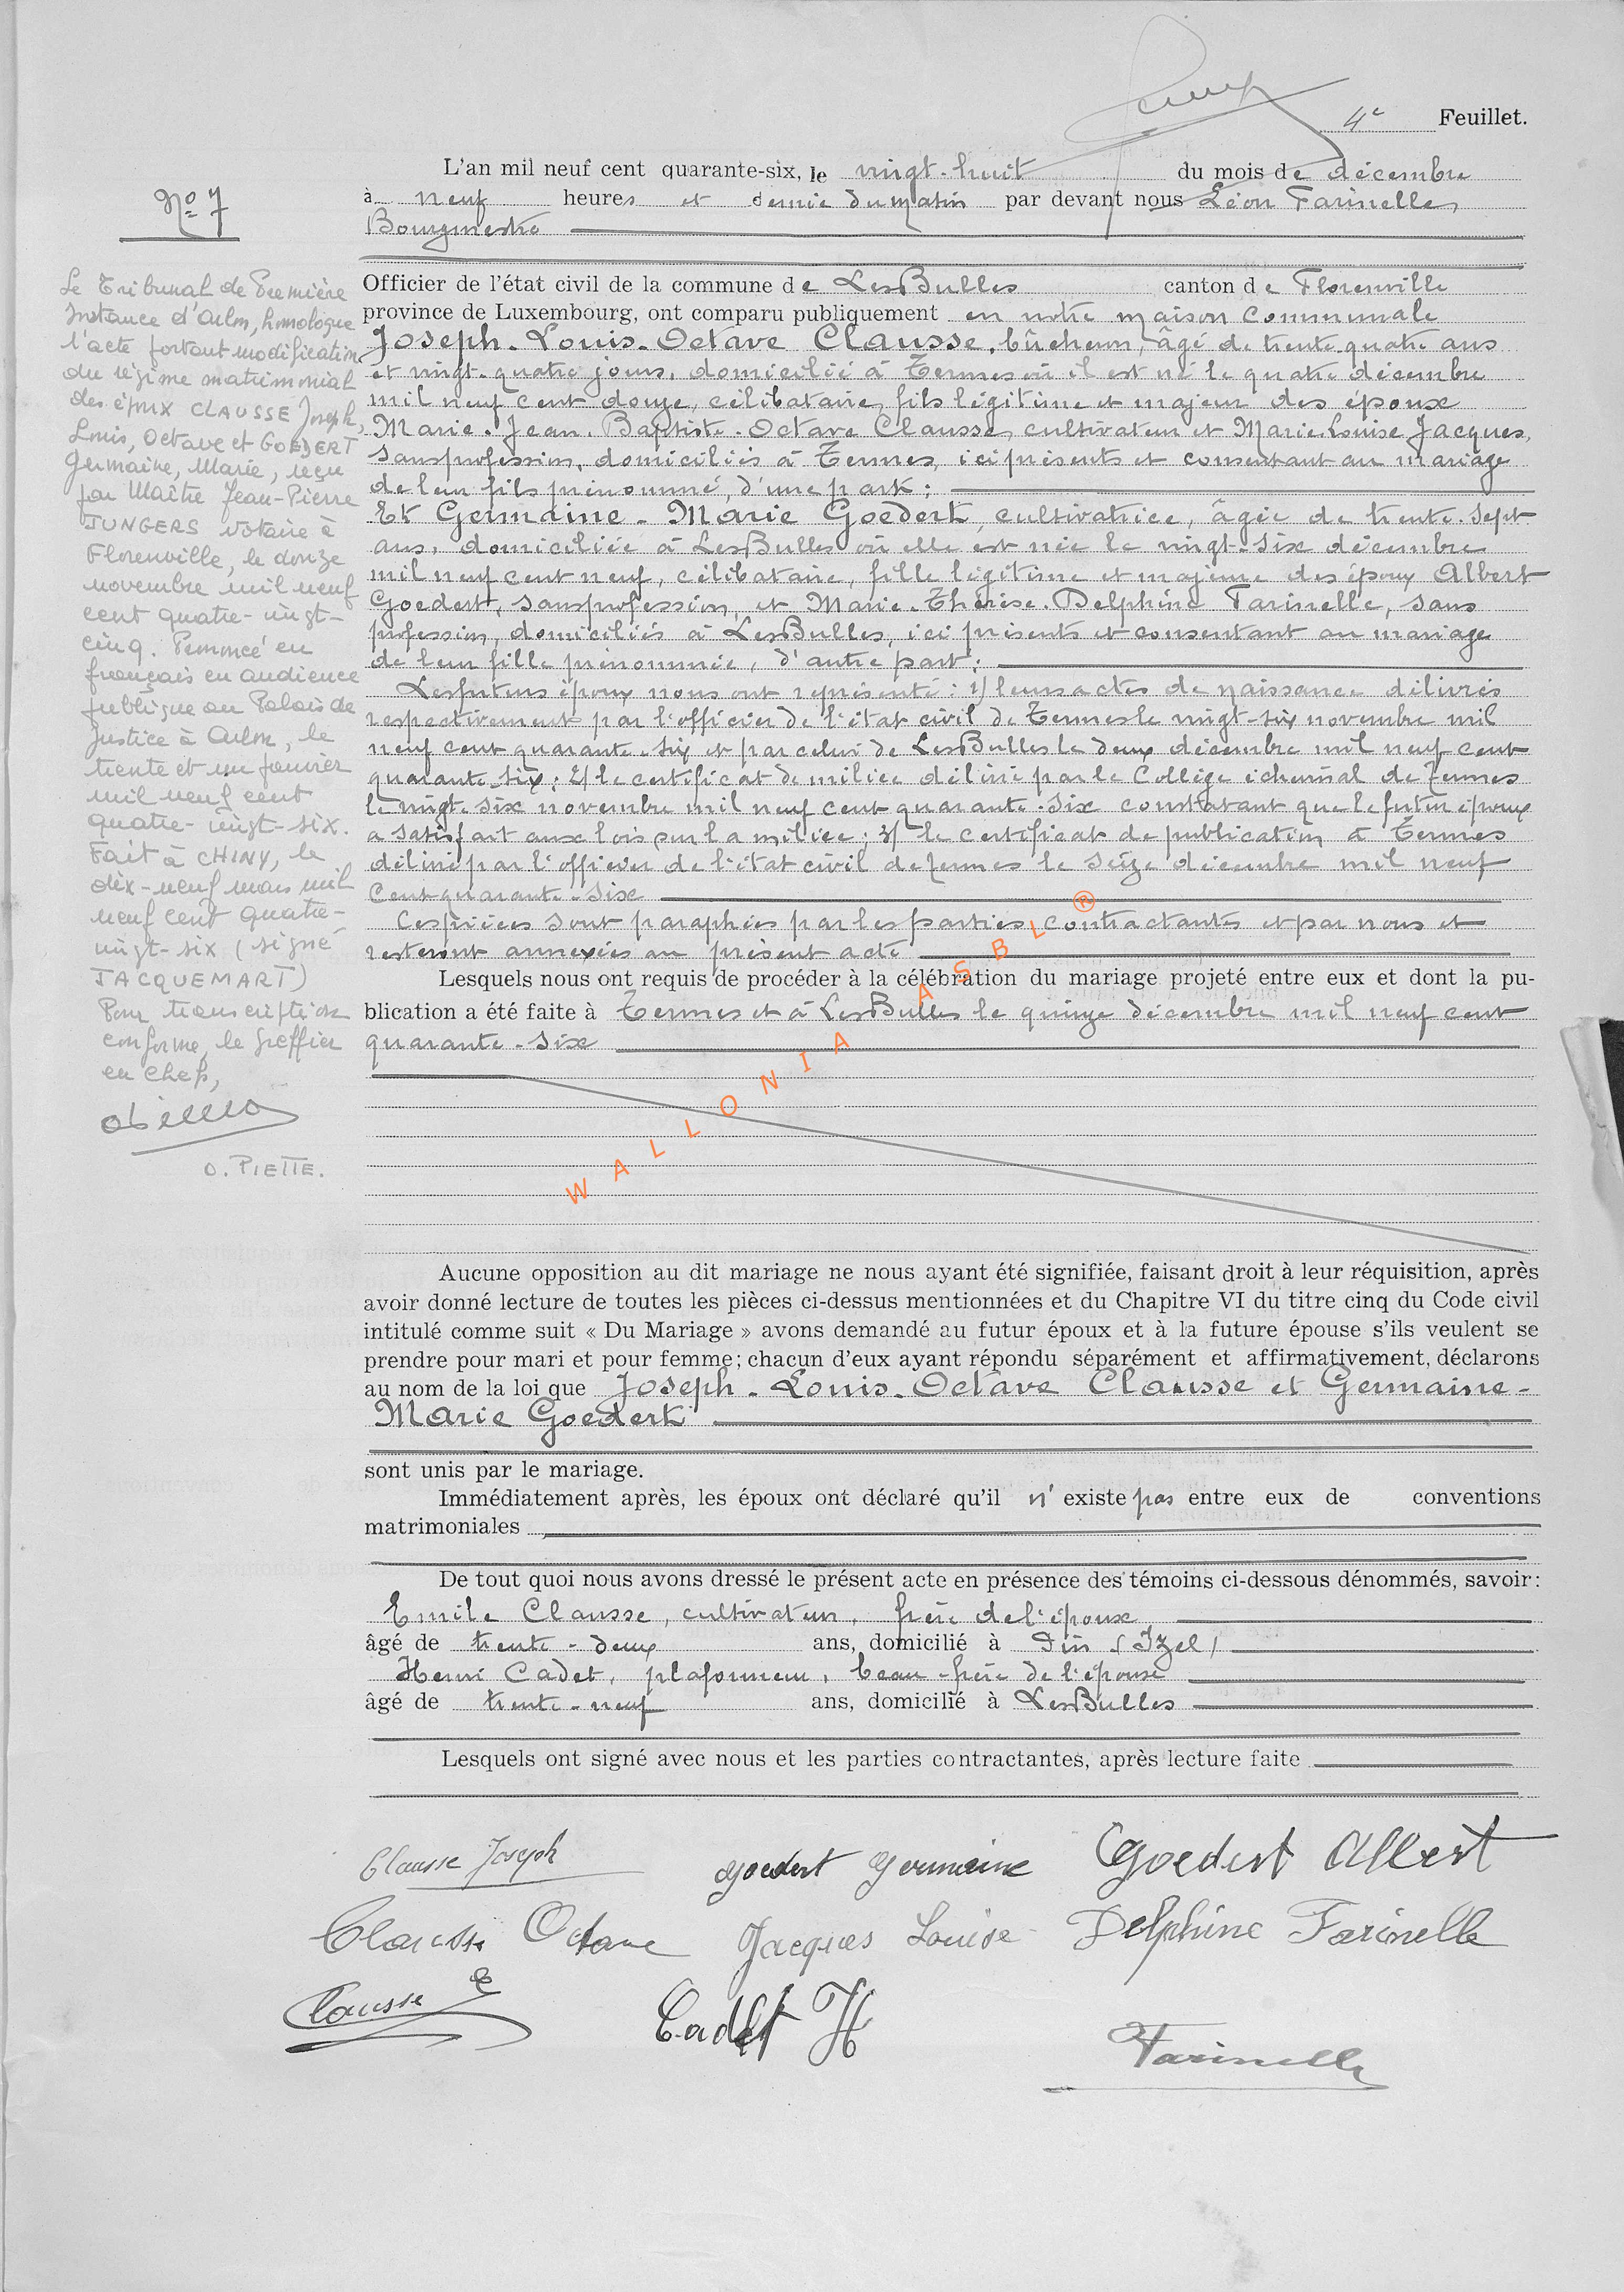 4e Feuillet.
L'an mil neuf cent quarante-six, le vingt-huit du mois de décembre
à neuf heures et demie du matin par devant nous Léon Farinelle,
Bourgmestre
Officier de l'état civil de la commune de LesBulles canton de Florenville
province de Luxembourg, ont comparu publiquement en notre maison communale
Joseph-Louis-Octave Clausse, bûcheron, âgé de trente-quatre ans
et vingt-quatre jours, domicilié à Termes où il est né le quatre décembre
mil neuf cent douze, célibataire, fils légitime et majeur des époux
Marie-Jean-Baptiste-Octave Clausse, cultivateur et Marie-Louise Jacques,
sans profession, domiciliés à Termes, ici présents et consentant au mariage
de leur fils prénommé, d'une part;
Et Germaine-Marie Goedert, cultivatrice, âgée de trente-sept
ans, domiciliée à LesBulles où elle est née le vingt-six décembre
mil neuf cent neuf, célibataire, fille légitime et majeure des époux Albert
Goedert, sans profession, et Marie-Thérèse-Delphine Farinelle, sans
profession, domiciliés à LesBulles, ici présents et consentant au mariage
de leur fille prénommée, d'autre part;
Les futurs époux nous ont représenté: 1/ leurs actes de naissance délivrés
respectivement par l'officier de l'état civil de Termes le vingt-six novembre mil
neuf cent quarante-six et par celui de LesBulles le deux décembre mil neuf cent
quarante-six; 2/ le certificat de milice délivré par le Collège échevinal de Termes
le vingt-six novembre mil neuf cent quarante-six constatant que le futur époux
a satisfait aux lois sur la milice; 3/ le certificat de publication à Termes
délivré par l'officier de l'état civil de Termes le seize décembre mil neuf
cent quarante-six
Ces pièces sont paraphées par les parties contractantes et par nous et
resteront annexées au présent acte
Lesquels nous ont requis de procéder à la célébration du mariage projeté entre eux et dont la pu-
blication a été faite à Termes et à LesBulles le quinze décembre mil neuf cent
quarante-six
Aucune opposition au dit mariage ne nous ayant été signifiée, faisant droit à leur réquisition, après
avoir donné lecture de toutes les pièces ci-dessus mentionnées et du Chapitre VI du titre cinq du Code civil
intitulé comme suit « Du Mariage » avons demandé au futur époux et à la future épouse s'ils veulent se
prendre pour mari et pour femme; chacun d'eux ayant répondu séparément et affirmativement, déclarons
au nom de la loi que Joseph-Louis-Octave Clausse et Germaine-
Marie Goedert
sont unis par le mariage.
Immédiatement après, les époux ont déclaré qu'il n'existe pas entre eux de conventions
matrimoniales
De tout quoi nous avons dressé le présent acte en présence des témoins ci-dessous dénommés, savoir:
Emile Clausse, cultivateur, frère de l'époux
âgé de trente-deux ans, domicilié à Pin (Izel)
Henri Cadet, plafonneur, beau-frère de l'épouse
âgé de trente-neuf ans, domicilié à LesBulles
Lesquels ont signé avec nous et les parties contractantes, après lecture faite
Clausse Joseph Goedert Germaine Goedert Albert
Clausse Octave Jacques Louise Delphine Farinelle
Clausse E Cadet H Farinelle
No 7
Le Tribunal de Première
Instance d'Arlon, homologue
l'acte portant modification
du régime matrimonial
des époux CLAUSSE Joseph,
Louis, Octave et GOEDERT
Germaine, Marie, reçu
par Maître Jean-Pierre
JUNGERS Notaire à
Florenville, le douze
novembre mil neuf
cent quatre-vingt-
cinq. Prononcé en
français en audience
publique au Palais de
Justice à Arlon, le
trente et un janvier
mil neuf cent
quatre-vingt-six.
Fait à CHINY, le
dix-neuf mars mil
neuf cent quatre-
vingt-six (signé
JACQUEMART)
Pour transcription
conforme, le greffier
en chef,
O. PIETTE.
WALLONIA ASBL ®